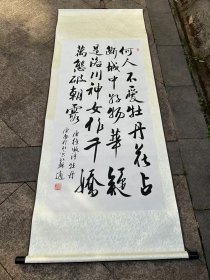 何人不愛牡丹花占
断城中好物華疑
是洛川神女作千嬌
萬態破朝霞
唐徐凝詩牡丹